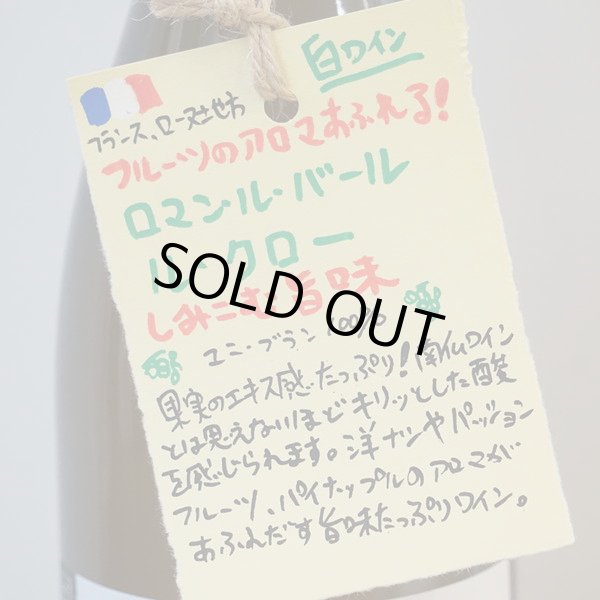 白ワイン
フランス、ローヌ地方
フルーツのアロマあふれる!
ロマン・ル・バール
ル・クロー
しみこむ旨味
SOLD OUT
ユニ・ブラン 100%
果実のエキス感たっぷり!南仏ワイン
とは思えないほどキリッとした酸
を感じられます。洋ナシやパッション
フルーツ、パイナップルのアロマが
あふれだす旨味たっぷりワイン。